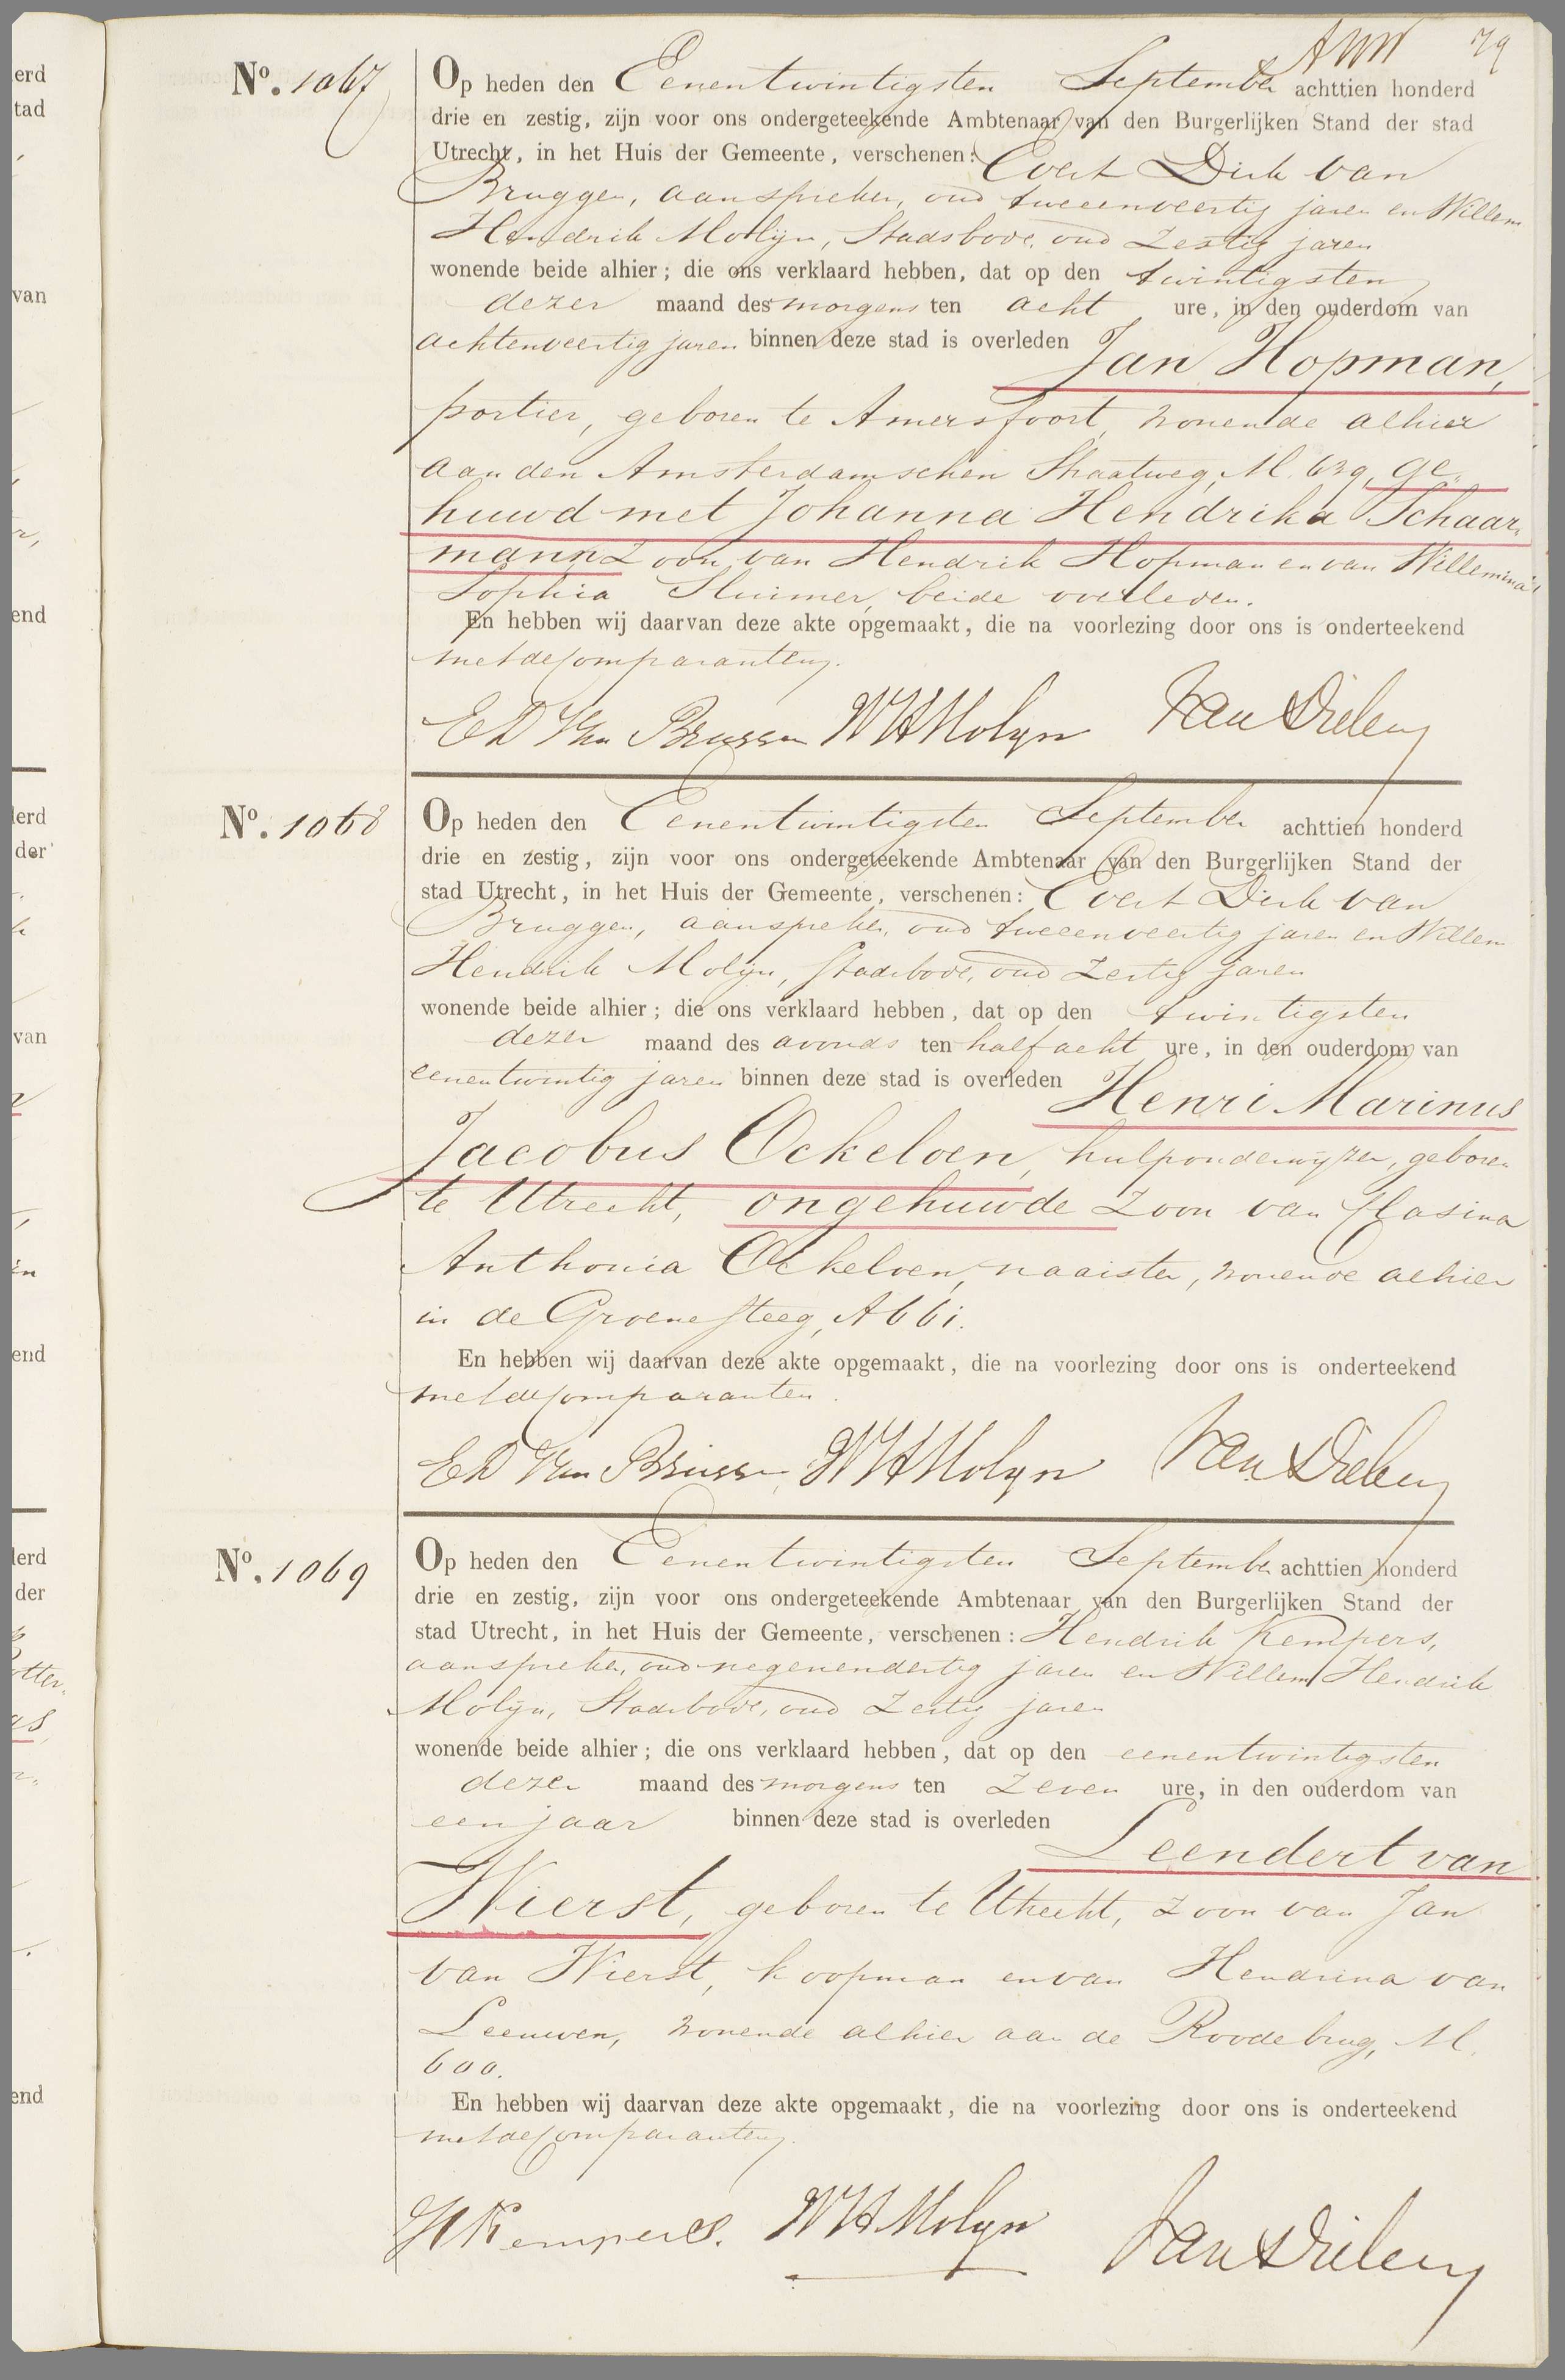 79
No. 1067
Op heden den Eenentwintigsten September achttien honderd
drie en zestig, zijn voor ons ondergeteekende Ambtenaar van den Burgerlijken Stand der stad
Utrecht, in het Huis der Gemeente, verschenen: Evert Dirk van
Bruggen, aanspreker, oud tweeenveertig jaren en Willem
Hendrik Molijn, Stadsbode, oud zestig jaren
wonende beide alhier; die ons verklaard hebben, dat op den twintigsten
dezer maand des morgens ten acht ure, in den ouderdom van
achtenveertig jaren binnen deze stad is overleden Jan Hopman,
portier, geboren te Amersfoort, wonende alhier
aan den Amsterdamschen Straatweg, M. 639, ge-
huwd met Johanna Hendrika Schaar-
mann zoon van Hendrik Hopman en van Willemina
Sophia Sluimer, beide overleden.
En hebben wij daarvan deze akte opgemaakt, die na voorlezing door ons is onderteekend
met de Comparanten.
ED Van Bruggen WHMolyn Van Dielen
No. 1068
Op heden den Eenentwintigsten September achttien honderd
drie en zestig, zijn voor ons ondergeteekende Ambtenaar van den Burgerlijken Stand der
stad Utrecht, in het Huis der Gemeente, verschenen: Evert Dirk van
Bruggen, aanspreker, oud tweeenveertig jaren en Willem
Hendrik Molijn, Stadsbode, oud zestig jaren
wonende beide alhier; die ons verklaard hebben, dat op den twintigsten
dezer maand des avonds ten half acht ure, in den ouderdom van
eenentwintig jaren binnen deze stad is overleden Henri Marinus
Jacobus Ockeloen, hulponderwijzer, geboren
te Utrecht, ongehuwde zoon van Clasina
Anthonia Ockeloen, naaister, wonende alhier
in de Groenesteeg, A 661.
En hebben wij daarvan deze akte opgemaakt, die na voorlezing door ons is onderteekend
met de Comparanten.
ED Van Bruggen, WHMolyn Van Dielen
No. 1069
Op heden den Eenentwintigsten September achttien honderd
drie en zestig, zijn voor ons ondergeteekende Ambtenaar van den Burgerlijken Stand der
stad Utrecht, in het Huis der Gemeente, verschenen: Hendrik Kempers,
aanspreker, oud negenendertig jaren en Willem Hendrik
Molijn, Stadsbode, oud zestig jaren
wonende beide alhier; die ons verklaard hebben, dat op den eenentwintigsten
dezer maand des morgens ten zeven ure, in den ouderdom van
een jaar binnen deze stad is overleden Leendert van
Wierst, geboren te Utrecht, zoon van Jan
van Wierst, koopman en van Hendrina van
Leeuwen, wonende alhier aan de Roodebrug, M.
600.
En hebben wij daarvan deze akte opgemaakt, die na voorlezing door ons is onderteekend
met de Comparanten.
HKempers. WHMolyn Van Dielen